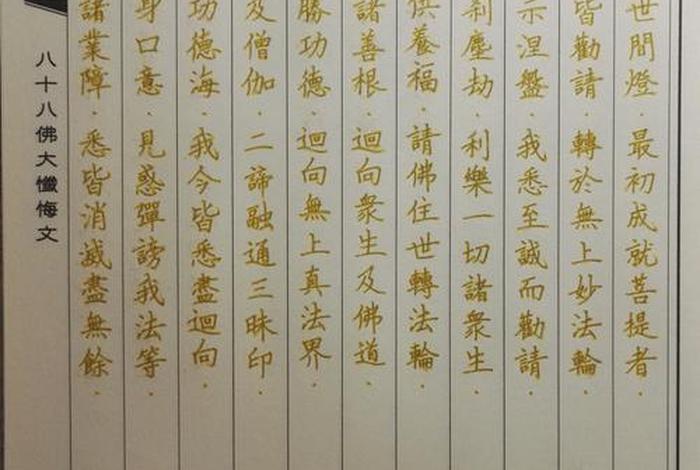 世間燈．最初成就菩提者．
皆勸請．轉於無上妙法輪．
示涅盤．我悉至誠而勸請．
剎塵劫．利樂一切諸衆生．
供養福．請佛住世轉法輪．
諸善根．迴向衆生及佛道．
勝功德．迴向無上真法界．
及僧伽．二諦融通三昧印．
功德海．我今皆悉盡迴向．
身口意．見惑彈謗我法等．
諸業障．悉皆消滅盡無餘．
八十八佛大懺悔文